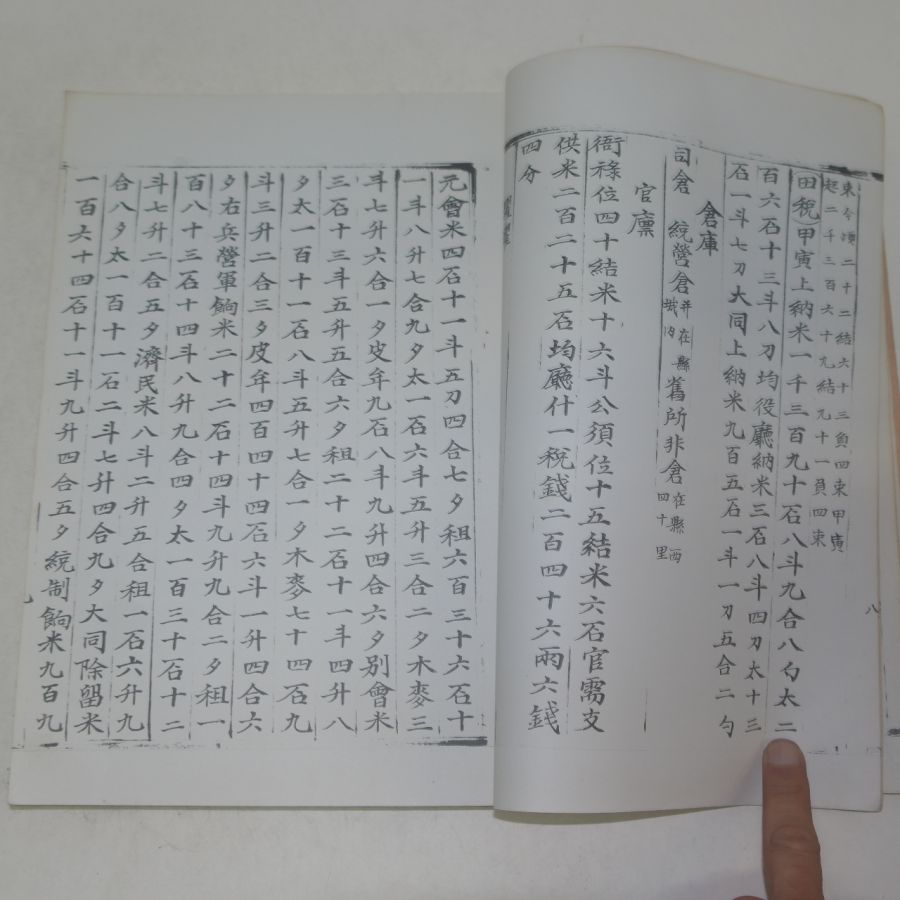 二千三百六十九結九十一負四束
田稅甲寅上納米一千三百九十石八斗九合八勺太二
百六石十三斗八刀均役廳納米三石八斗四刀太十三
石一斗七刀大同上納米九百五石一斗一刀五合二勺
倉庫
司倉 統營倉並在縣城內 舊所非倉在縣西四十里
官廩
衙祿位四十結米十六斗公須位十五結米六石官需支
供米二百二十五石均廳什一稅錢二百四十六兩六錢
四分
八
元會米四石十一斗五刀四合七夕租六百三十六石十
一斗八升七合九夕太一石六斗五升三合二夕木麥三
斗七升六合一夕皮年九石八斗九升四合六夕別會米
三石十三斗五升五合六夕租二十二石十一斗四升八
夕太一百十一石八斗五升七合一夕木麥七十四石九
斗三升二合三夕皮年四百四十四石六斗一升四合六
夕右兵營軍餉米二十二石十四斗九升九合二夕租一
百八十三石十四斗八升九合四夕太一百三十石十二
斗七升二合五夕濟民米八斗二升五合租一石六升九
合八夕太一百十一石二斗七升四合九夕大同除留米
一百六十四石十一斗九升四合五夕統制餉米九百九